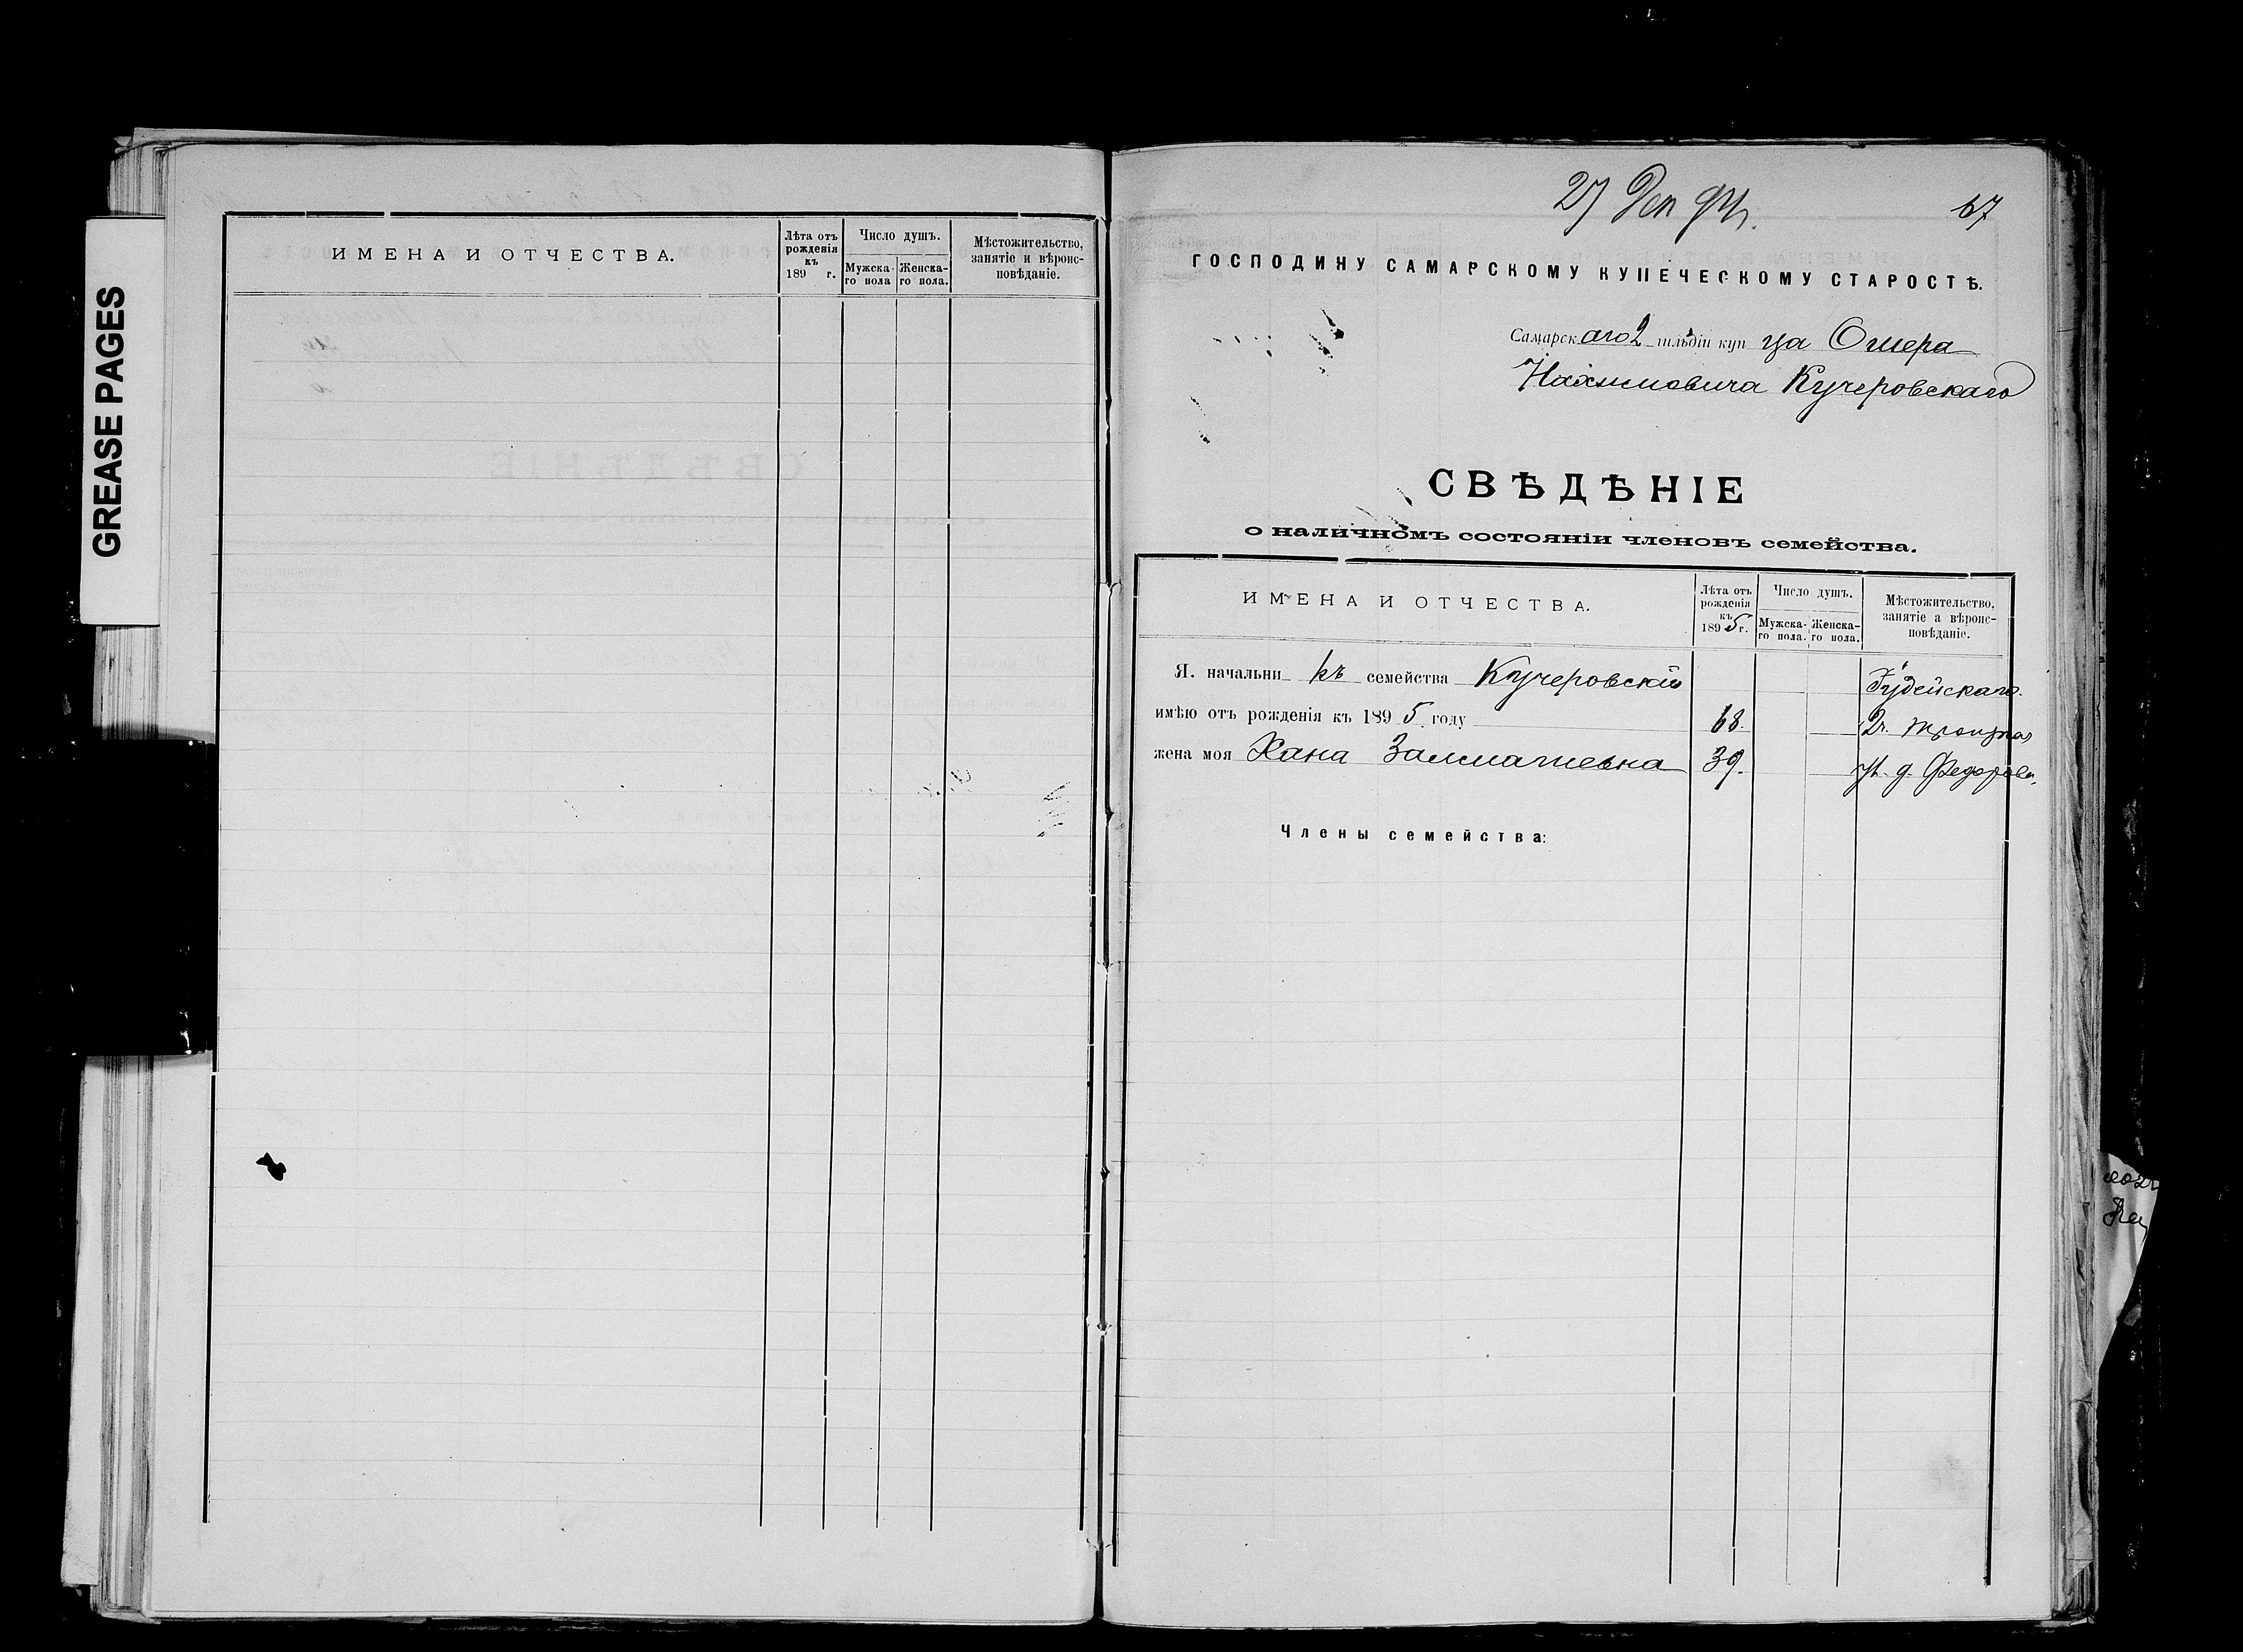 GREASE PAGES
ИМЕНА И ОТЧЕСТВА.
Лѣта отъ рожденія къ 189 г.
Число душъ.
Мужска-го пола
Женска-го пола.
Мѣстожительство, занятіе и вѣроис-повѣданіе.
27 Дек 94 г.
67
ГОСПОДИНУ САМАРСКОМУ КУПЕЧЕСКОМУ СТАРОСТѢ.
Самарскаго 2 гильдіи купца Ошера
Нахимовича Кучеровскаго
СВѢДѢНІЕ
о наличномъ состояніи членовъ семейства.
ИМЕНА И ОТЧЕСТВА.
Лѣта отъ рожденія къ 1895 г.
Число душъ.
Мужска-го пола.
Женска-го пола.
Мѣстожительство, занятіе а вѣроис-повѣданіе.
Я. начальникъ семейства Кучеровскій Іудейскаго.
имѣю отъ рожденія къ 1895 году 68.
жена моя Хана 39. д. Федорова.
Члены семейства: